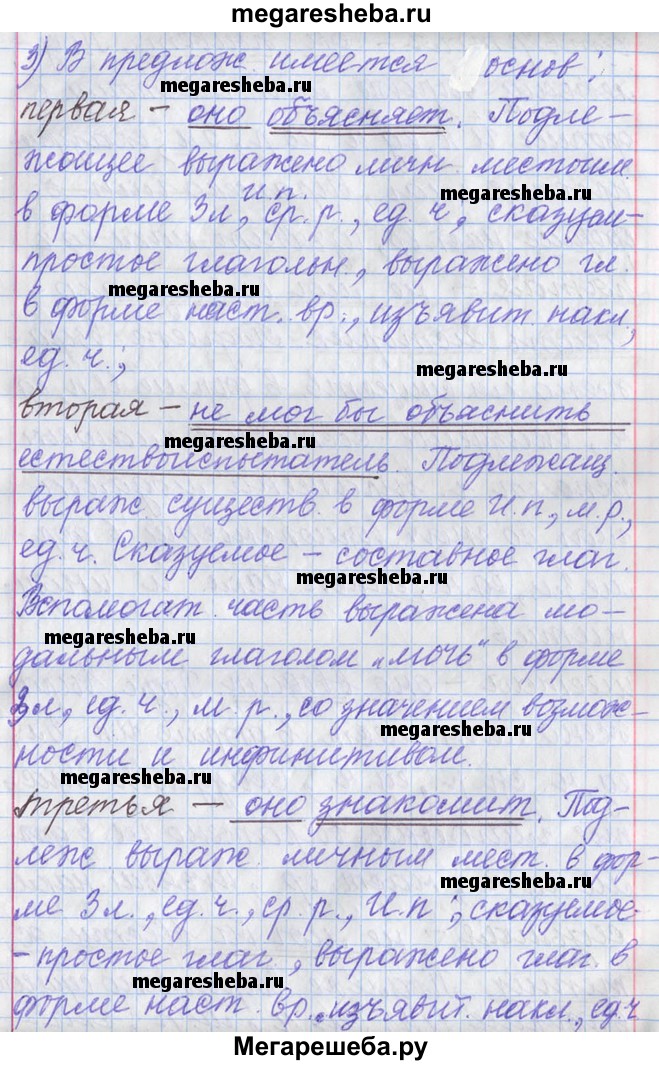 megaresheba.ru
3) В предлож. имеется основ:
megaresheba.ru
первая – оно объясняет. Подле-
megaresheba.ru
жащее выражено личн. местоим.
megaresheba.ru
И.п.
в форме 3л, ср.р., ед. ч, сказуем-
простое глагольн., выражено гл.
megaresheba.ru
в форме наст. вр., изъявит. накл,
ед. ч.;
megaresheba.ru
вторая – не мог бы объяснить
megaresheba.ru
естествоиспытатель. Подлежащ.
выраж. существ. в форме И.п., м.р.,
ед. ч. Сказуемое – составное глаг.
megaresheba.ru
Вспомогат. часть выражена мо-
megaresheba.ru
дальным глаголом „мочь" в форме
3л., ед. ч., м. р., со значением возмож-
megaresheba.ru
ности и инфинитивом.
megaresheba.ru
третья – оно знакомит. Под-
леж. выраж. личным мест. в фор-
megaresheba.ru
ме 3л., ед. ч., ср. р., И.п.; сказуемое-
-простое глаг., выражено глаг. в
megaresheba.ru
форме наст. вр. изъявит. накл., ед.ч
Мегарешеба.ру